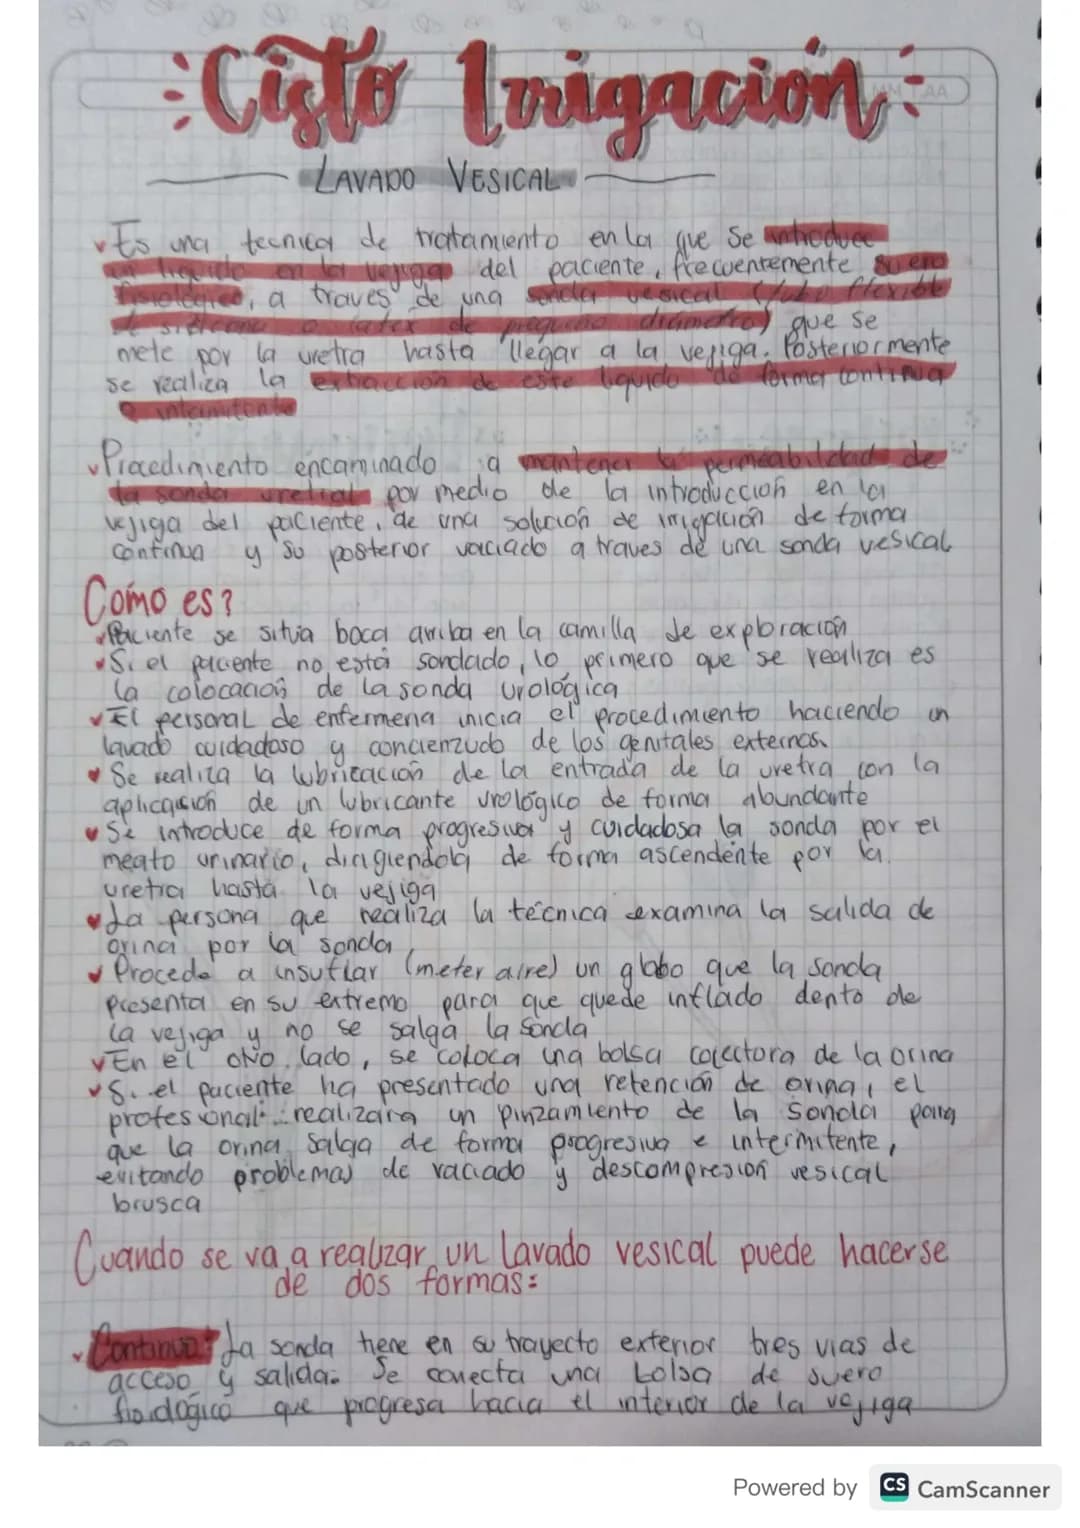 Cisto Irrigación
MM AA
LAVADO VESICAL
Es una tecnica de tratamiento en la que se introduce
un liquido en la vejiga del paciente, frecuentemente suero
fisiologico, a traves de una sonda vesical (tubo flexible
de silicona o latex de pequeño diámetro) que se
mete por la uretra hasta llegar a la vejiga. Posteriormente
se realiza la extracción de este liquido de forma continua
o intermitente
Procedimiento encaminado a mantener la permeabilidad de
la sonda uretral por medio de la introducción en la
vejiga del paciente, de una solución de irrigación de forma
continua y su posterior vaciado a traves de una sonda vesical
Como es?
Paciente se sitúa boca arriba en la camilla de exploración
Si el paciente no está sondado, lo primero que se realiza es
la colocación de la sonda urológica
El personal de enfermeria inicia el procedimiento haciendo un
lavado cuidadoso y concienzudo de los genitales externos.
Se realiza la lubricación de la entrada de la uretra con la
aplicación de un lubricante urológico de forma abundante
Se introduce de forma progresiva y cuidadosa la sonda por el
meato urinario, dirigiendola de forma ascendente por la
uretra hasta la vejiga
La persona que realiza la técnica examina la salida de
orina por la sonda
Procede a insuflar (meter aire) un globo que la sonda
presenta en su extremo para que quede inflado dento de
la vejiga y no se salga la sonda
En el otro lado, se coloca una bolsa colectora de la orina
Si el paciente ha presentado una retención de orina, el
profesional realizara un pinzamiento de la sonda para
que la orina salga de forma progresiva e intermitente,
evitando problemas de vaciado y descompresión vesical
brusca
Cuando se va a realizar un lavado vesical puede hacerse
de dos formas:
Continuo: La sonda tiene en su trayecto exterior tres vias de
acceso y salida. Se conecta una bolsa de suero
fisiológico que progresa hacia el interior de la vejiga
Powered by CS CamScanner